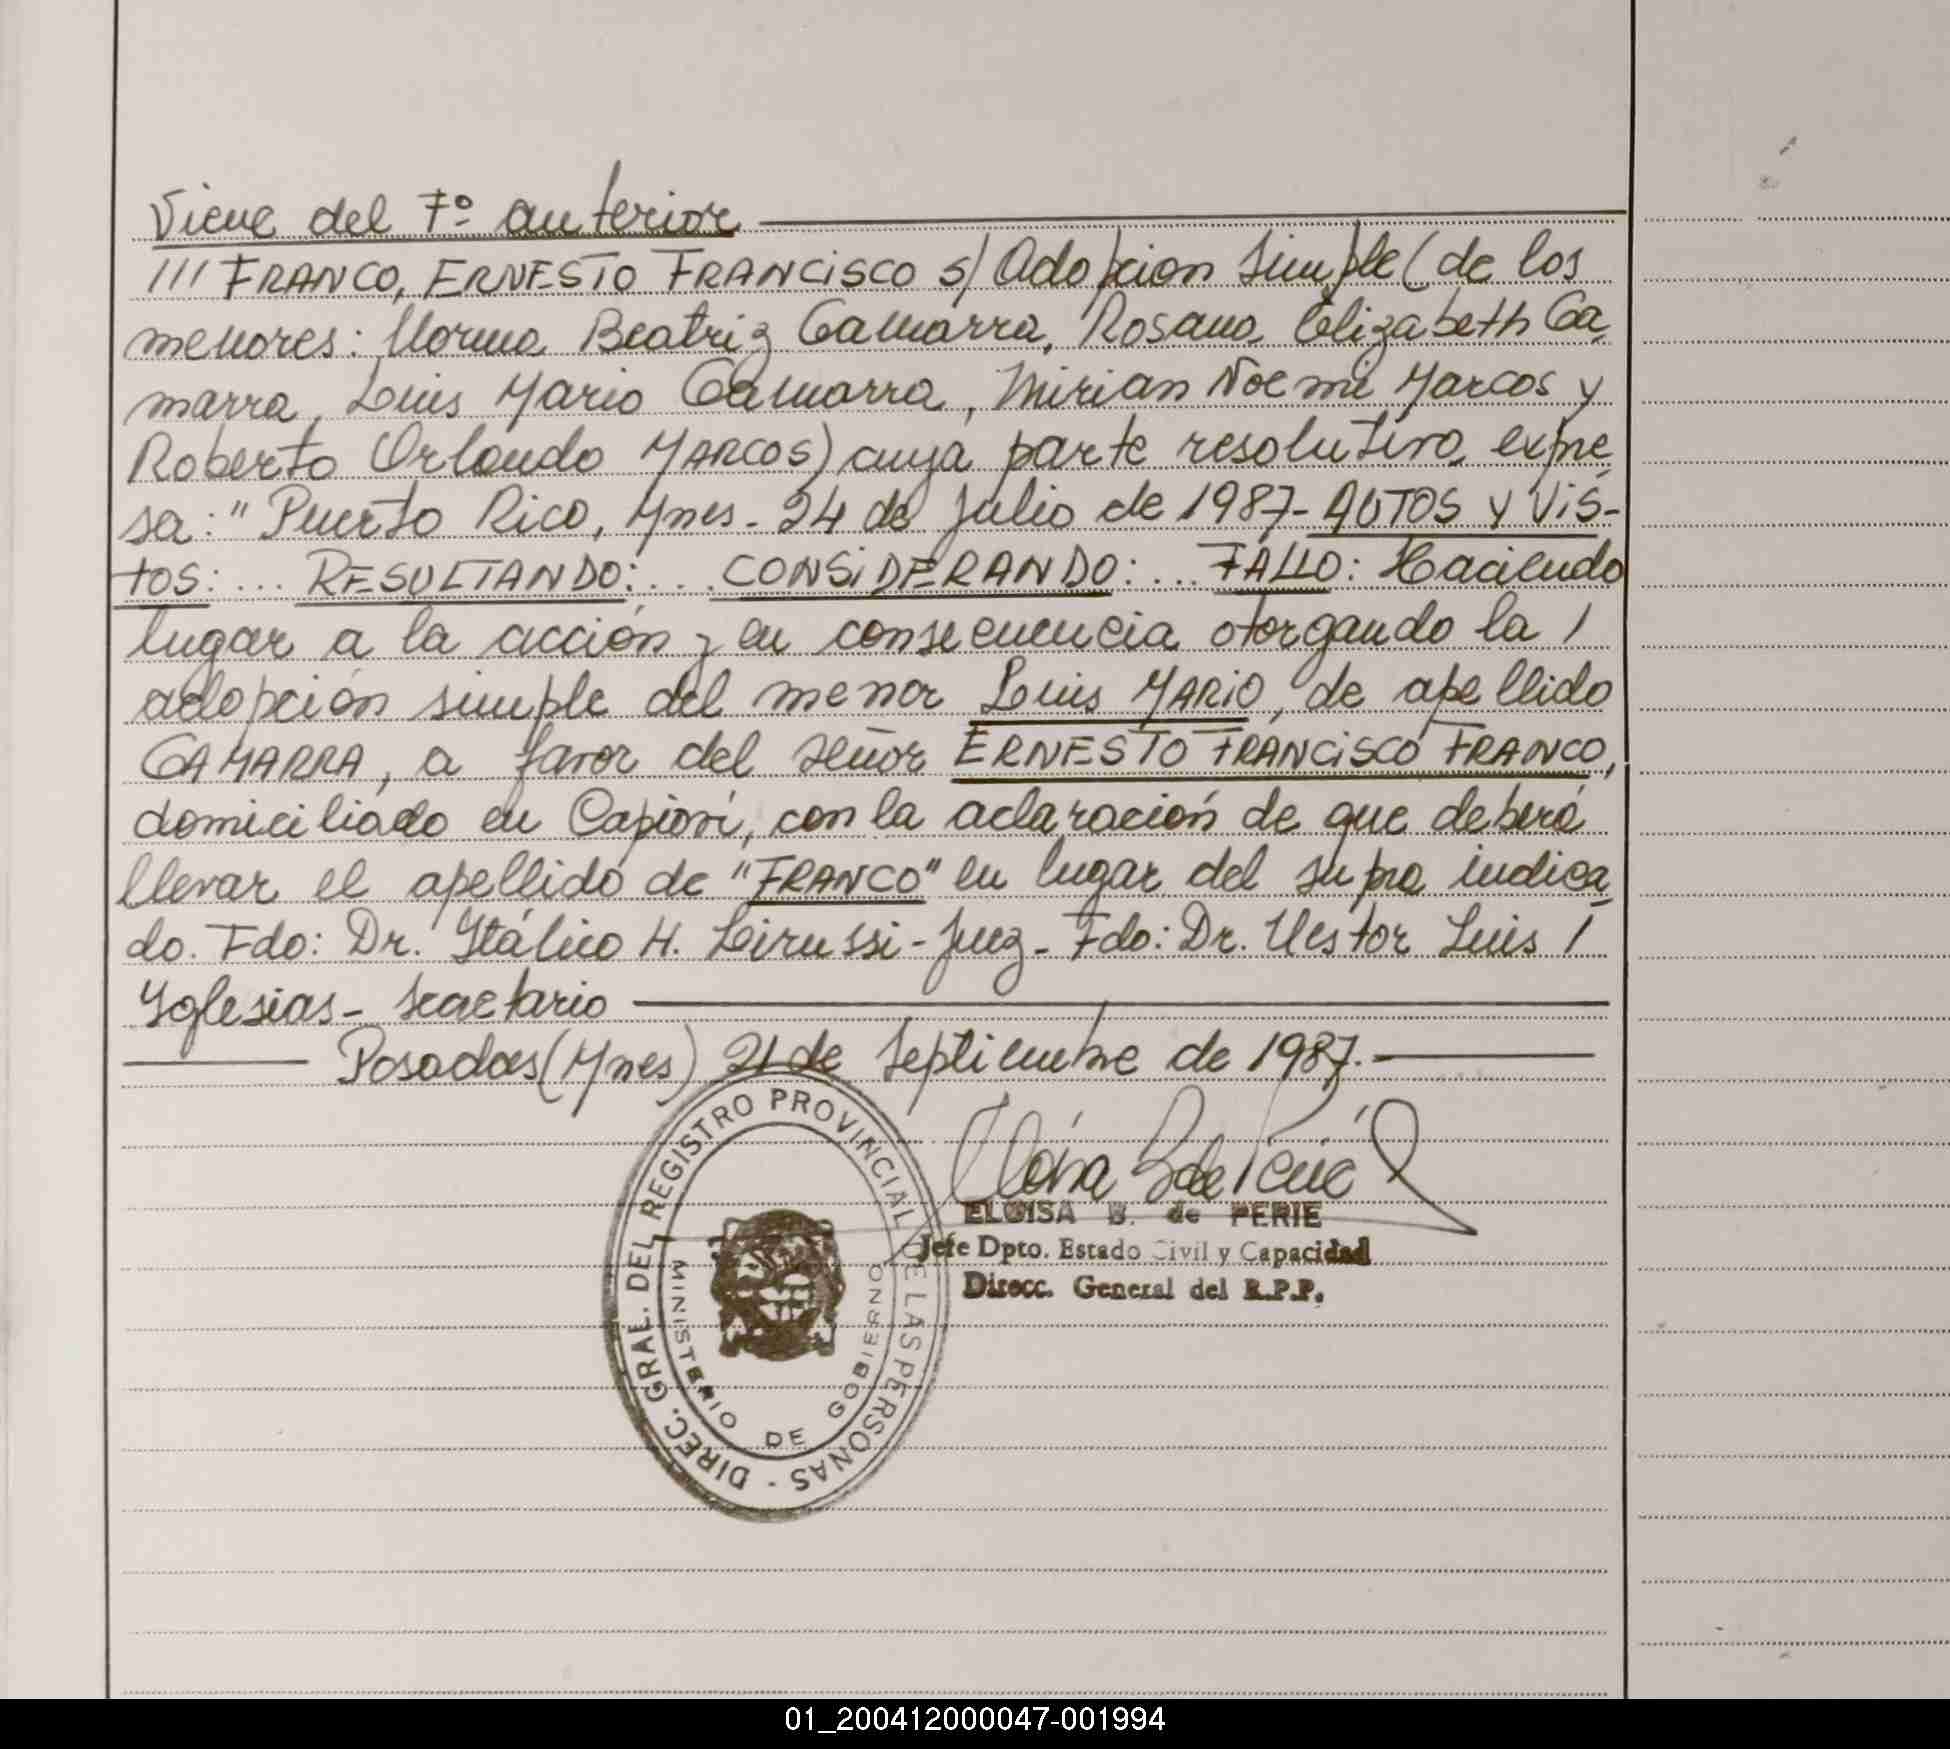 Viene del Fº anterior
/// FRANCO, ERNESTO FRANCISCO s/ Adopcion Simple (de los
menores: Norma Beatriz Gamarra, Rosana Elizabeth Ga-
marra, Luis Mario Gamarra, Mirian Noemi Marcos y
Roberto Orlando MARCOS) cuya parte resolutiva expre-
sa: "Puerto Rico, Mnes. 24 de Julio de 1987- AUTOS y VIS-
TOS: ... RESULTANDO: ... CONSIDERANDO: ... FALLO: Haciendo
lugar a la acción y en consecuencia otorgando la /
adopción simple del menor Luis MARIO, de apellido
GAMARRA, a favor del señor ERNESTO FRANCISCO FRANCO,
domiciliado en Capioví, con la aclaración de que deberá
llevar el apellido de "FRANCO" en lugar del supra indica
do. Fdo: Dr. Itálico H. Lirussi - Juez - Fdo: Dr. Nestor Luis /
Yglesias - Secretario
Posadas (Mnes) 21 de Septiembre de 1987.-
Eloisa B de Perié
ELOISA B. de PERIE
Jefe Dpto. Estado Civil y Capacidad
Direcc. General del R.P.P.
DIREC. GRAL. DEL REGISTRO PROVINCIAL DE LAS PERSONAS -
MINISTERIO DE GOBIERNO
01_200412000047-001994